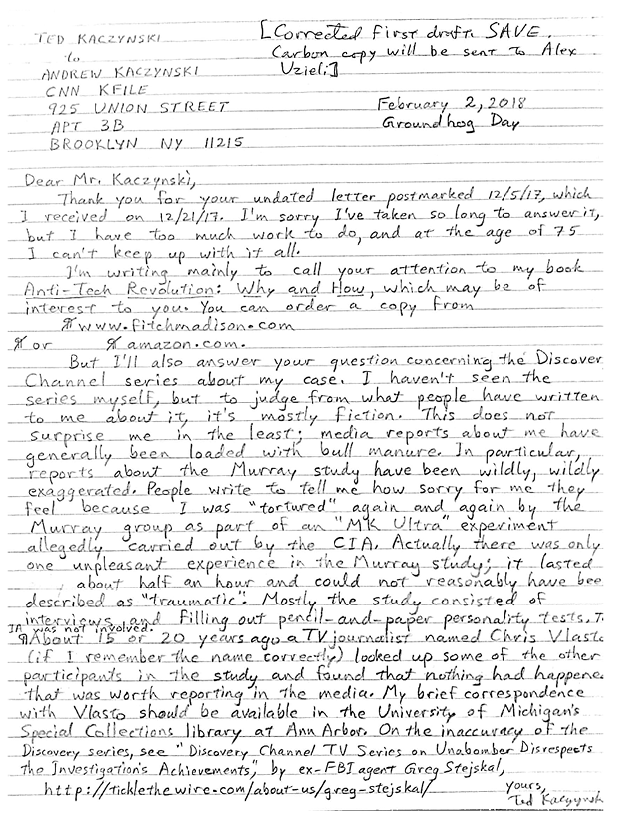 TED KACZYNSKI
to
ANDREW KACZYNSKI
CNN KFILE
925 UNION STREET
APT 3B
BROOKLYN NY 11215
[Corrected first draft. SAVE.
Carbon copy will be sent to Alex
Uzieli.]
February 2, 2018
Groundhog Day
Dear Mr. Kaczynski,
Thank you for your undated letter postmarked 12/5/17, which
I received on 12/21/17. I'm sorry I've taken so long to answer it,
but I have too much work to do, and at the age of 75
I can't keep up with it all.
I'm writing mainly to call your attention to my book
Anti-Tech Revolution: Why and How, which may be of
interest to you. You can order a copy from
www.fitchmadison.com
or amazon.com.
But I'll also answer your question concerning the Discover
Channel series about my case. I haven't seen the
series myself, but to judge from what people have written
to me about it, it's mostly fiction. This does not
surprise me in the least; media reports about me have
generally been loaded with bull manure. In particular,
reports about the Murray study have been wildly, wildly
exaggerated. People write to tell me how sorry for me they
feel because I was "tortured" again and again by the
Murray group as part of an "MK Ultra" experiment
allegedly carried out by the CIA. Actually there was only
one unpleasant experience in the Murray study; it lasted
about half an hour and could not reasonably have bee
described as "traumatic". Mostly the study consisted of
interviews and filling out pencil-and-paper personality tests. T
IA was not involved.
¶About 15 or 20 years ago a TV journalist named Chris Vlast
(if I remember the name correctly) looked up some of the other
participants in the study and found that nothing had happene
that was worth reporting in the media. My brief correspondence
with Vlasto should be available in the University of Michigan's
Special Collections library at Ann Arbor. On the inaccuracy of the
Discovery series, see "Discovery Channel TV Series on Unabomber Disrespects
the Investigation's Achievements," by ex-FBI agent Greg Stejskal,
http://ticklethewire.com/about-us/greg-stejskal/
yours,
Ted Kaczynsk